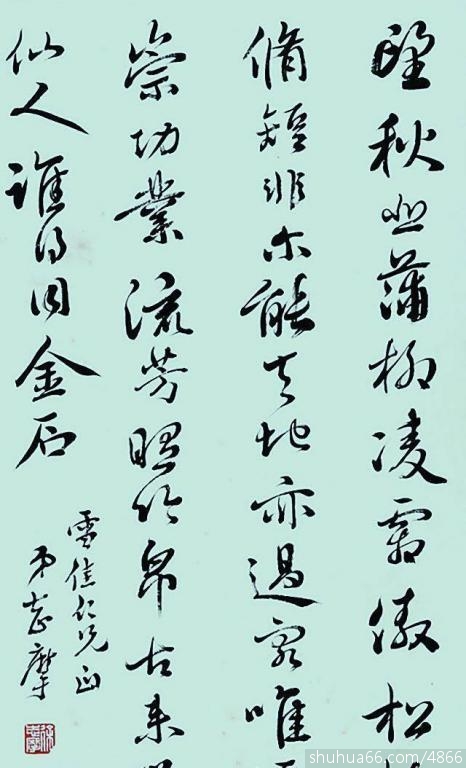 望秋悲蒲柳凌霜傲松
脩短非尔能天地亦過客唯
崇功業流芳昭竹帛古来
仙人誰得同金石
雲佳仁兄正
弟志摩
shuhua66.com/4866